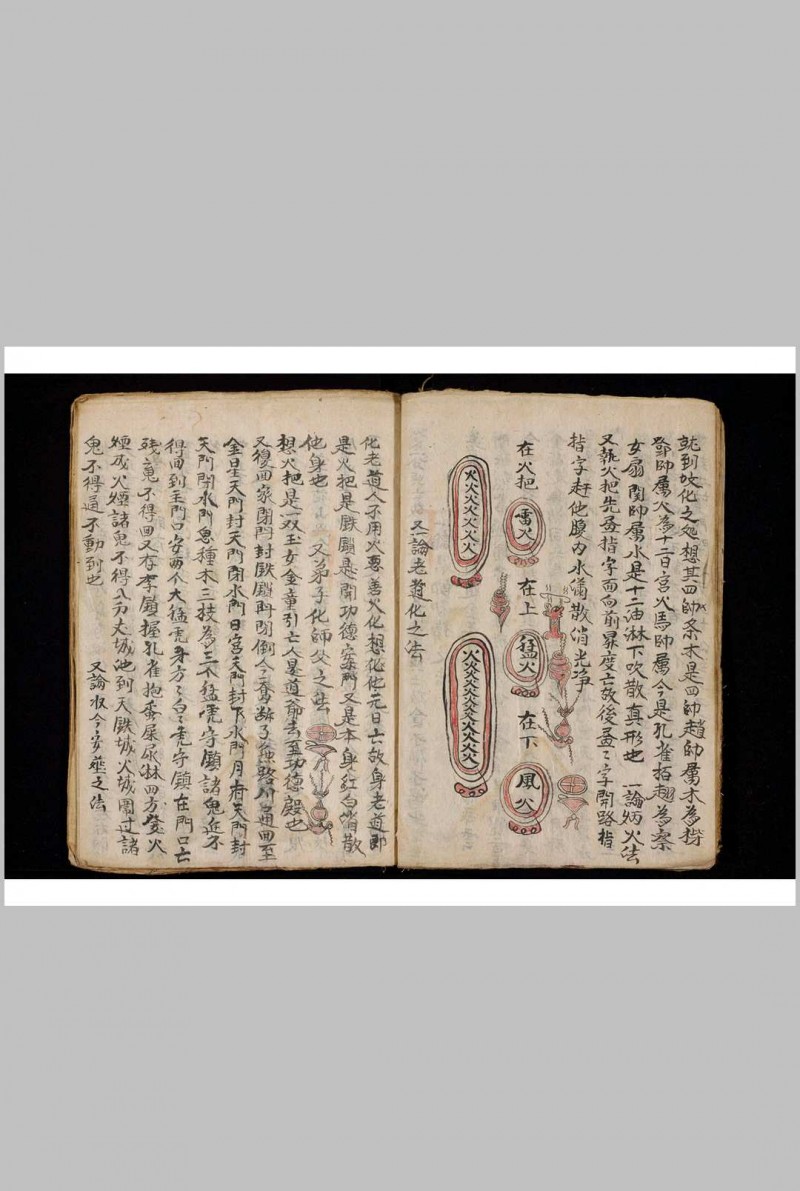 就到坟化之処想其四帅条木是四帅趙帅属木為橙
鄧帅属火為十二日宮火馬帅属今是孔雀拓翅為察
女扇関帅属水是十二油淋下吹散真形也 一論炳火法
又執火把先盖指字而向前昇度亡故後盖〻字開路指
指字赶他腹内水滿散消光净
在火把 雷火 在上 猛火 在下 風火
火火火火火火火
火火火火火火火火火
又論老道化之法
化老道人不用火要善火化想化他元日亡故身老道即
是火把是鉄鎖匙開功德案門又是本身紅白消散
他身也 又弟子化師父之法
想火把是一双玉女金童引亡人是道爺去至功德殿也
又復回家閉門封鉄鎖再閉倒今斉断了陰路不通回至
金星天門封天門閉水門日宮天門封下水門月府天門封
天門閉水門急種木三枝為三不猛虎守鎮諸鬼近不
得回到玉門口安两个大猛虎身方〻白〻虎守鎮在門口亡
殘鬼不得回又存李鎮握孔雀抱香屎尿淋四方登火
煙成火煙諸鬼不得八万丈城池到天鉄城火城圍过諸
鬼不得通不動到也
又論収今安葬之法